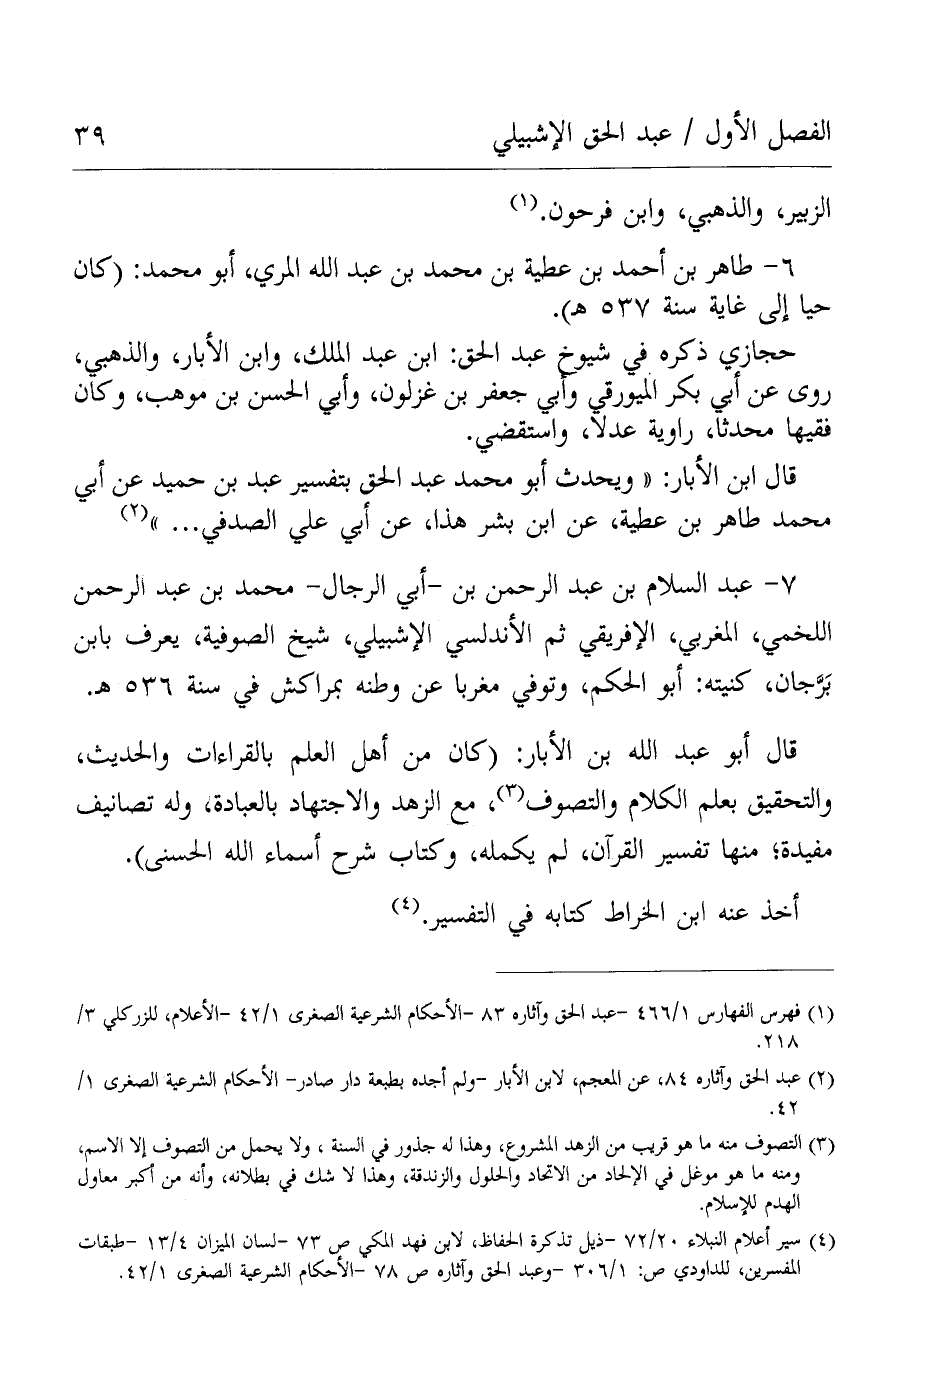 الفصل الأول / عبد الحق الإشبيلي ٣٩
الزبير، والذهبي، وابن فرحون.(١)
٦- طاهر بن أحمد بن عطية بن محمد بن عبد الله المري، أبو محمد: (كان
حيا إلى غاية سنة ٥٣٧ هـ).
حجازي ذكره في شيوخ عبد الحق: ابن عبد الملك، وابن الأبار، والذهبي،
روى عن أبي بكر الميورقي وأبي جعفر بن غزلون، وأبي الحسن بن موهب، وكان
فقيها محدثا، راوية عدلا، واستقضي.
قال ابن الأبار: « ويحدث أبو محمد عبد الحق بتفسير عبد بن حميد عن أبي
محمد طاهر بن عطية، عن ابن بشر هذا، عن أبي علي الصدفي... »(٢)
٧- عبد السلام بن عبد الرحمن بن -أبي الرجال- محمد بن عبد الرحمن
اللخمي، المغربي، الإفريقي ثم الأندلسي الإشبيلي، شيخ الصوفية، يعرف بابن
بَرَّجان، كنيته: أبو الحكم، وتوفي مغربا عن وطنه بمراكش في سنة ٥٣٦ هـ.
قال أبو عبد الله بن الأبار: (كان من أهل العلم بالقراءات والحديث،
والتحقيق بعلم الكلام والتصوف(٣)، مع الزهد والاجتهاد بالعبادة، وله تصانيف
مفيدة؛ منها تفسير القرآن، لم يكمله، وكتاب شرح أسماء الله الحسنى).
أخذ عنه ابن الخراط كتابه في التفسير.(٤)
(١) فهرس الفهارس ٤٦٦/١ -عبد الحق وآثاره ٨٣ -الأحكام الشرعية الصغرى ٤٢/١ -الأعلام، للزركلي ٣/
٢١٨.
(٢) عبد الحق وآثاره ٨٤، عن المعجم، لابن الأبار -ولم أجده بطبعة دار صادر- الأحكام الشرعية الصغرى ١/
٤٢.
(٣) التصوف منه ما هو قريب من الزهد المشروع، وهذا له جذور في السنة ، ولا يحمل من التصوف إلا الاسم،
ومنه ما هو موغل في الإلحاد من الاتحاد والحلول والزندقة، وهذا لا شك في بطلانه، وأنه من أكبر معاول
الهدم للإسلام.
(٤) سير أعلام النبلاء ٧٢/٢٠ -ذيل تذكرة الحفاظ، لابن فهد المكي ص ٧٣ -لسان الميزان ١٣/٤ -طبقات
المفسرين، للداودي ص: ٣٠٦/١ -وعبد الحق وآثاره ص ٧٨ -الأحكام الشرعية الصغرى ٤٢/١.